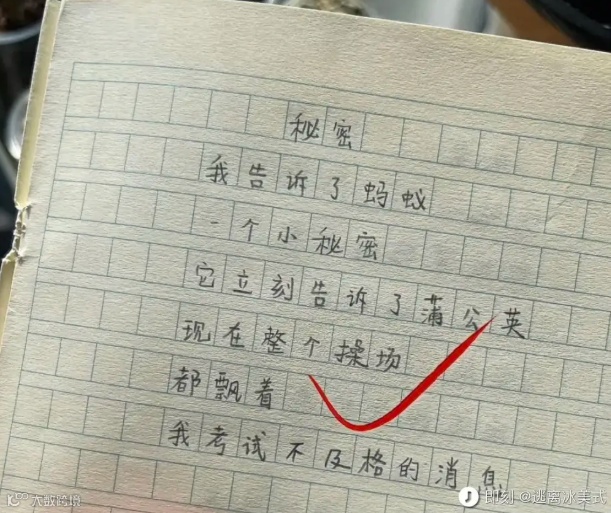 秘密
我告诉了蚂蚁
一个小秘密
它立刻告诉了蒲公英
现在整个操场
都飘着
我考试不及格的消息
大数跨境
即刻 @逃离冰美式